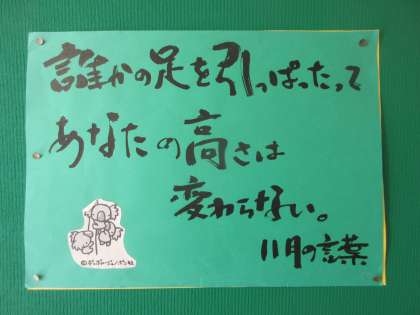 誰かの足を引っぱったって
あなたの高さは
変わらない。
11月の言葉